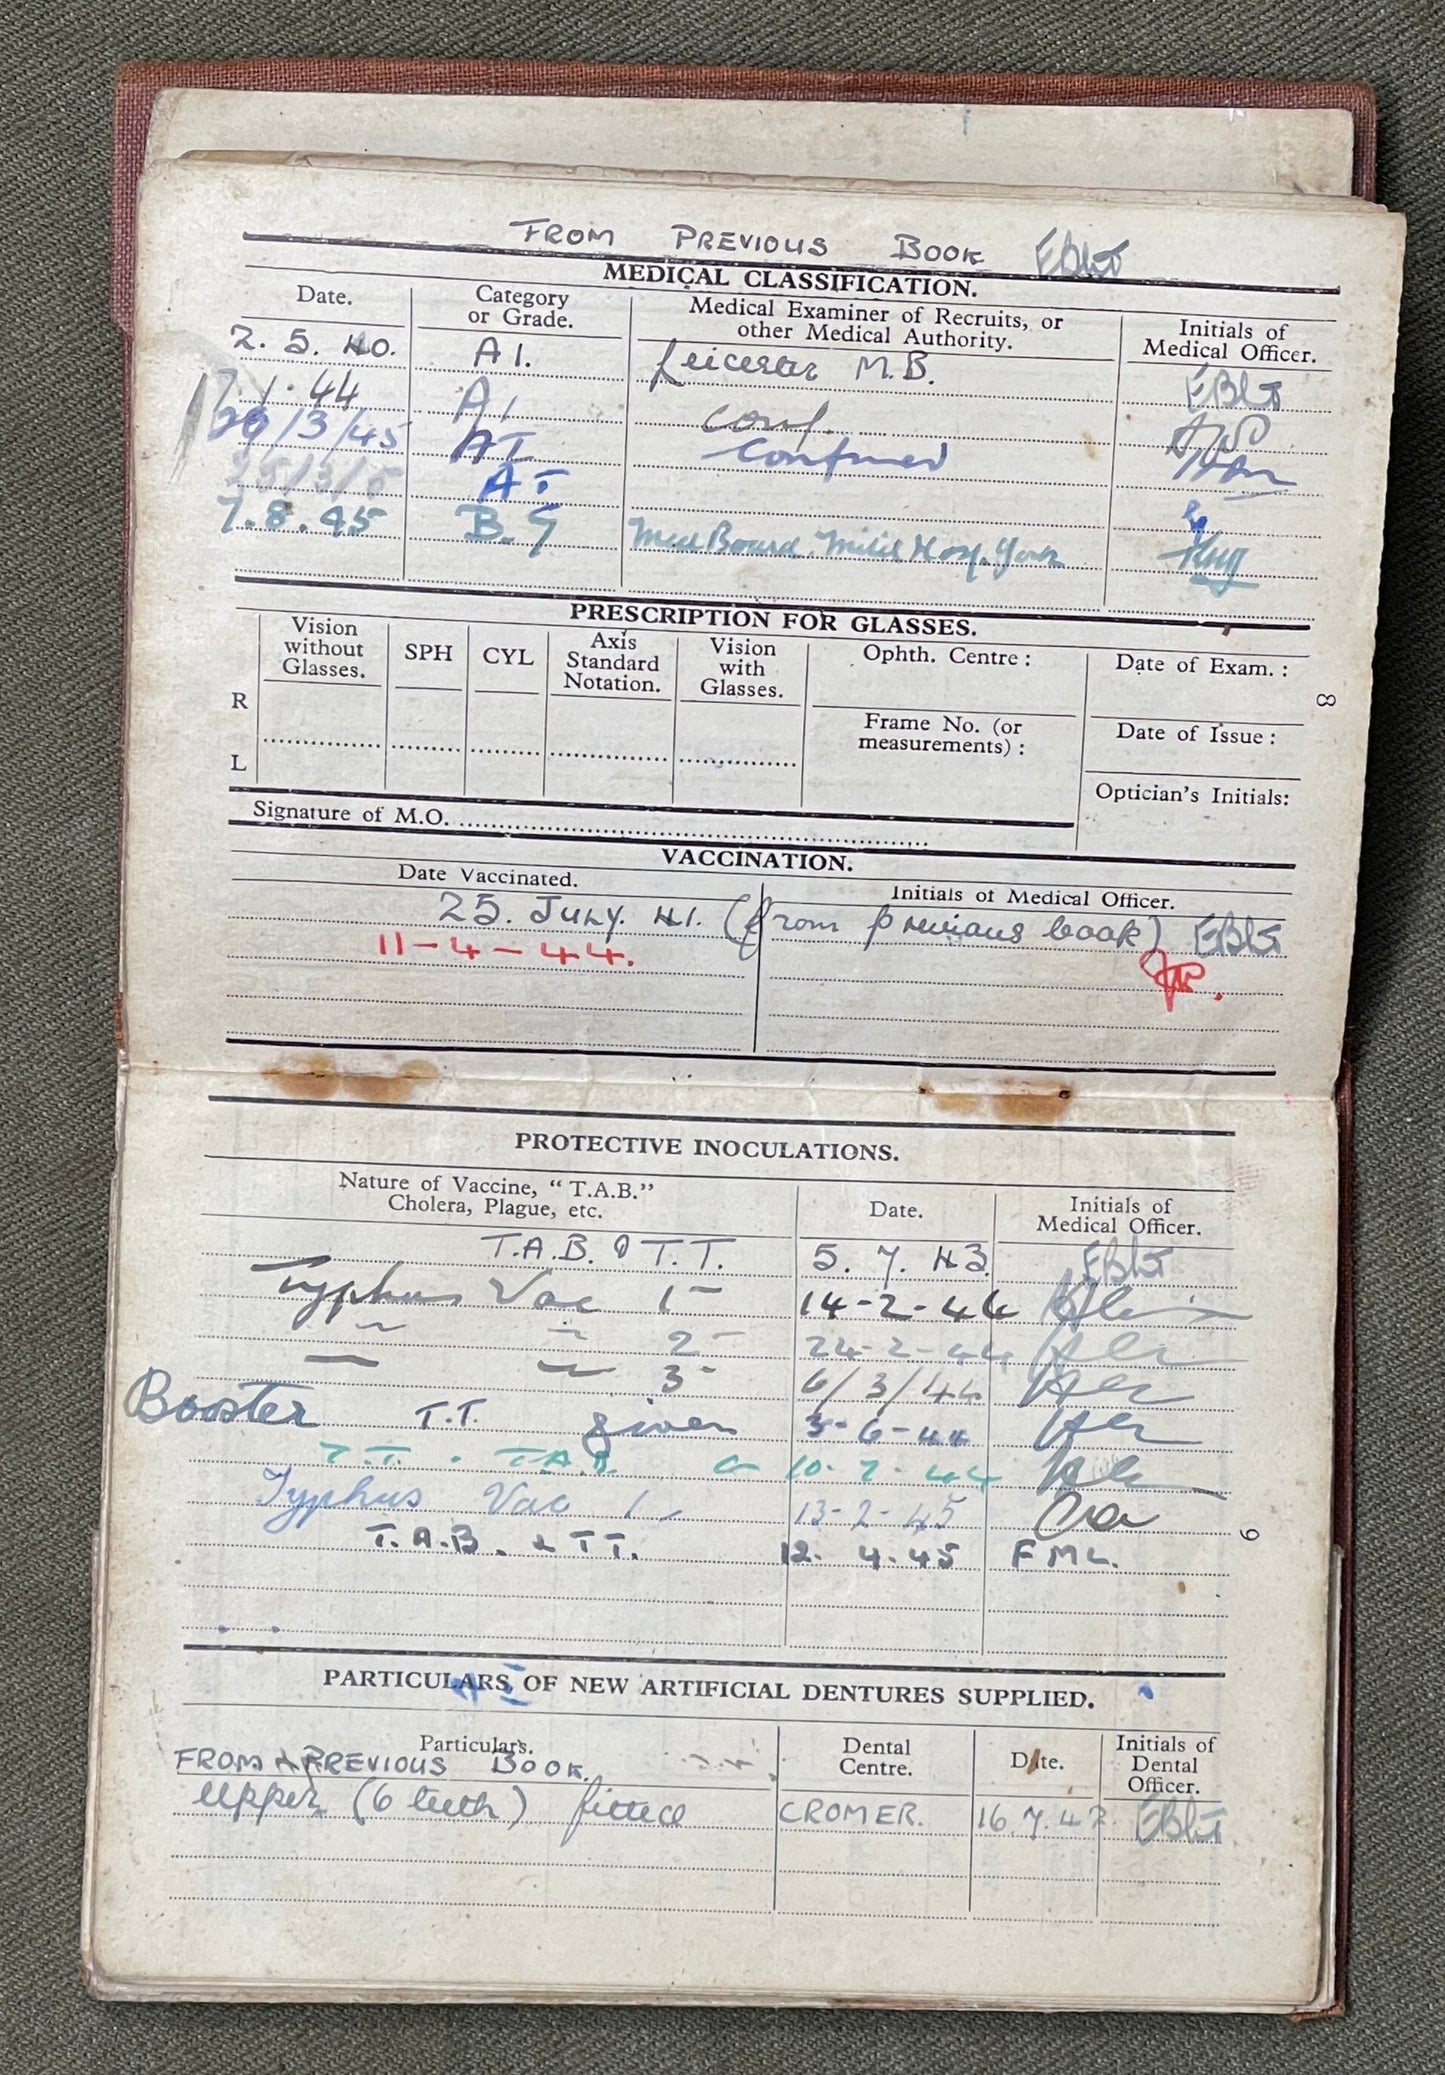 FROM PREVIOUS BOOK
MEDICAL CLASSIFICATION.
Date. Category or Grade. Medical Examiner of Recruits, or other Medical Authority. Initials of Medical Officer.
2. 5. 40. A1. Leicester M.B.
1. 44 A1 conf.
/3/45 A1 Confirmed
A1
7. 8. 45 B. Med Board. Milit Hosp. York
PRESCRIPTION FOR GLASSES.
Vision without Glasses. SPH CYL Axis Standard Notation. Vision with Glasses. Ophth. Centre: Date of Exam.:
R
Frame No. (or measurements): Date of Issue:
L
Optician's Initials:
8
Signature of M.O.
VACCINATION.
Date Vaccinated. Initials of Medical Officer.
25. JULY. 41. (from previous book)
11-4-44.
PROTECTIVE INOCULATIONS.
Nature of Vaccine, "T.A.B." Cholera, Plague, etc. Date. Initials of Medical Officer.
T.A.B. & T.T. 5. 7. 43
Typhus Vac 1 14-2-44
" " 2 24-2-44
" " 3 6/3/44
Booster T.T. given 3-6-44
T.T. . T.A.B. 10. 7. 44
Typhus Vac 1 13-2-45
T.A.B. & TT. 12. 4. 45 F M L.
9
PARTICULARS OF NEW ARTIFICIAL DENTURES SUPPLIED.
Particulars. Dental Centre. Date. Initials of Dental Officer.
FROM PREVIOUS BOOK.
Upper (6 teeth) fitted CROMER. 16. 7. 42